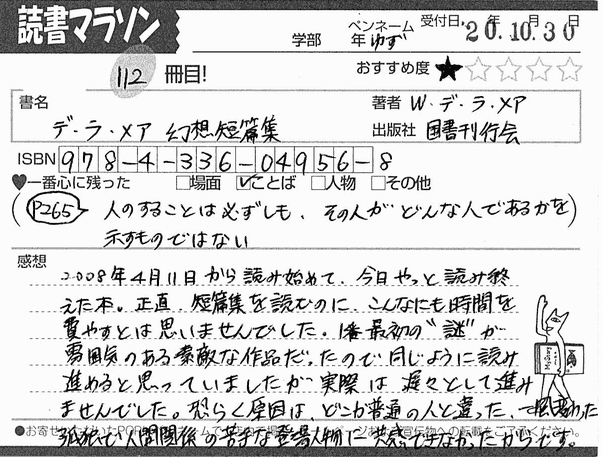 読書マラソン
学部 年 ペンネーム ゆず 受付日. '20年10.月30日
112 冊目! おすすめ度 ★☆☆☆☆
書名 著者 W・デ・ラ・メア
デ・ラ・メア 幻想短篇集 出版社 国書刊行会
ISBN 978-4-336-04956-8
♥一番心に残った □場面 ☑ことば □人物 □その他
(P265) 人のすることは必ずしも、その人がどんな人であるかを
示すものではない
感想
2008年4月11日から読み始めて、今日やっと読み終
えた本。正直、短篇集を読むのに、こんなにも時間を
費やすとは思いませんでした。1番最初の“謎”が
雰囲気のある素敵な作品だったので、同じように読み
進めると思っていましたが実際は遅々として進み
ませんでした。恐らく原因は、どこか普通の人と違った、風変わった
孤独で人間関係の苦手な登場人物に共感できなかったからです。
●お寄せいただいたPOP